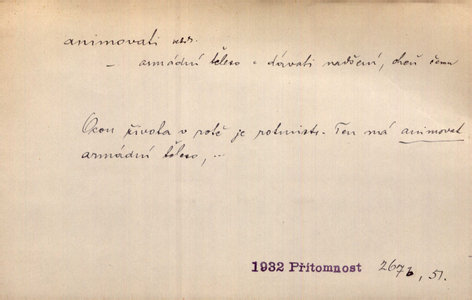 animovati ned.
– armádní těleso = dávati nadšení, oheň čemu
Osou života v rotě je rotmistr. Ten má animovat
armádní těleso, ...
1932 Přítomnost 267, 51.